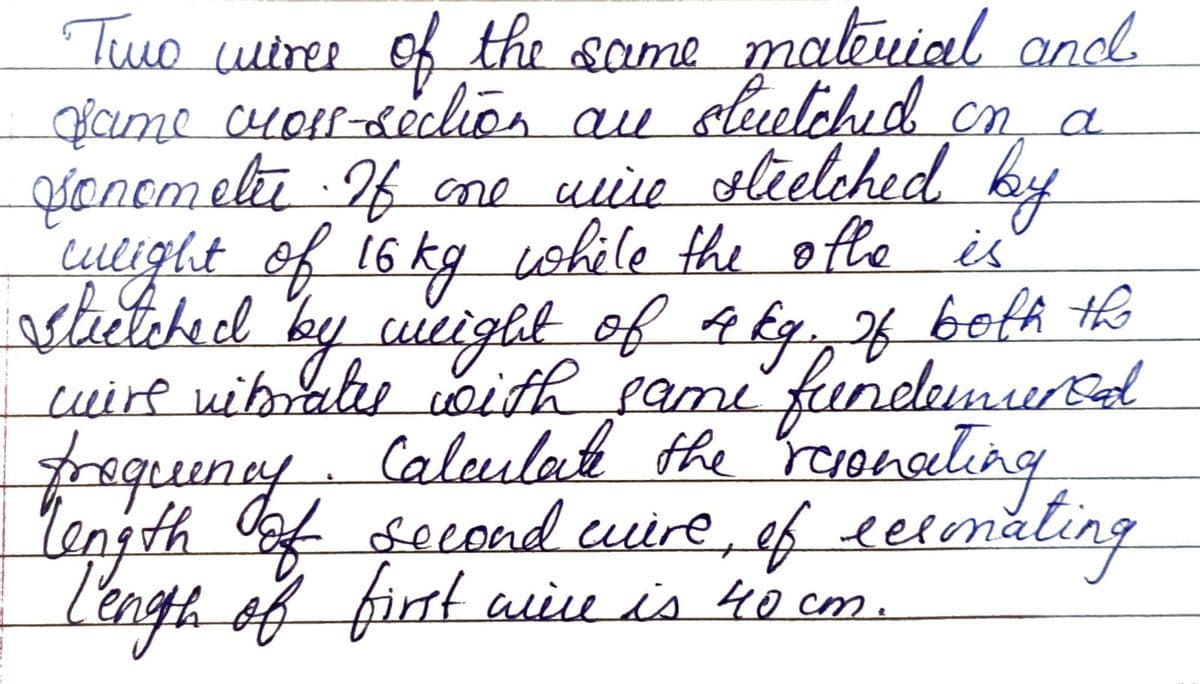 Two wires of the same material and
same cross-section are stretched on a
sonometer. If one wire stretched by
weight of 16 kg while the othe is
stretched by weight of 4 kg. If both the
wire vibrates with same fundemental
frequency. Calculate the resonating
length of second wire, if resonating
length of first wire is 40 cm.